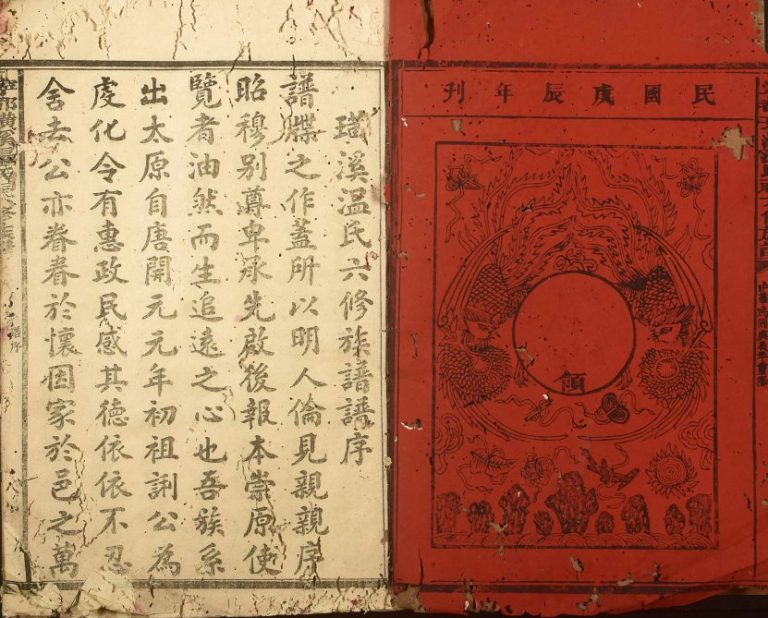 民國戊辰年刊
領
璜溪温氏六修族譜譜序
譜牒之作蓋所以明人倫見親親序
昭穆別尊卑承先啟後報本崇原使
覽者油然而生追遠之心也吾族系
出太原自唐開元元年初祖詶公為
虔化令有惠政民感其德依依不忍
舍去公亦眷眷於懷因家於邑之萬
譜序